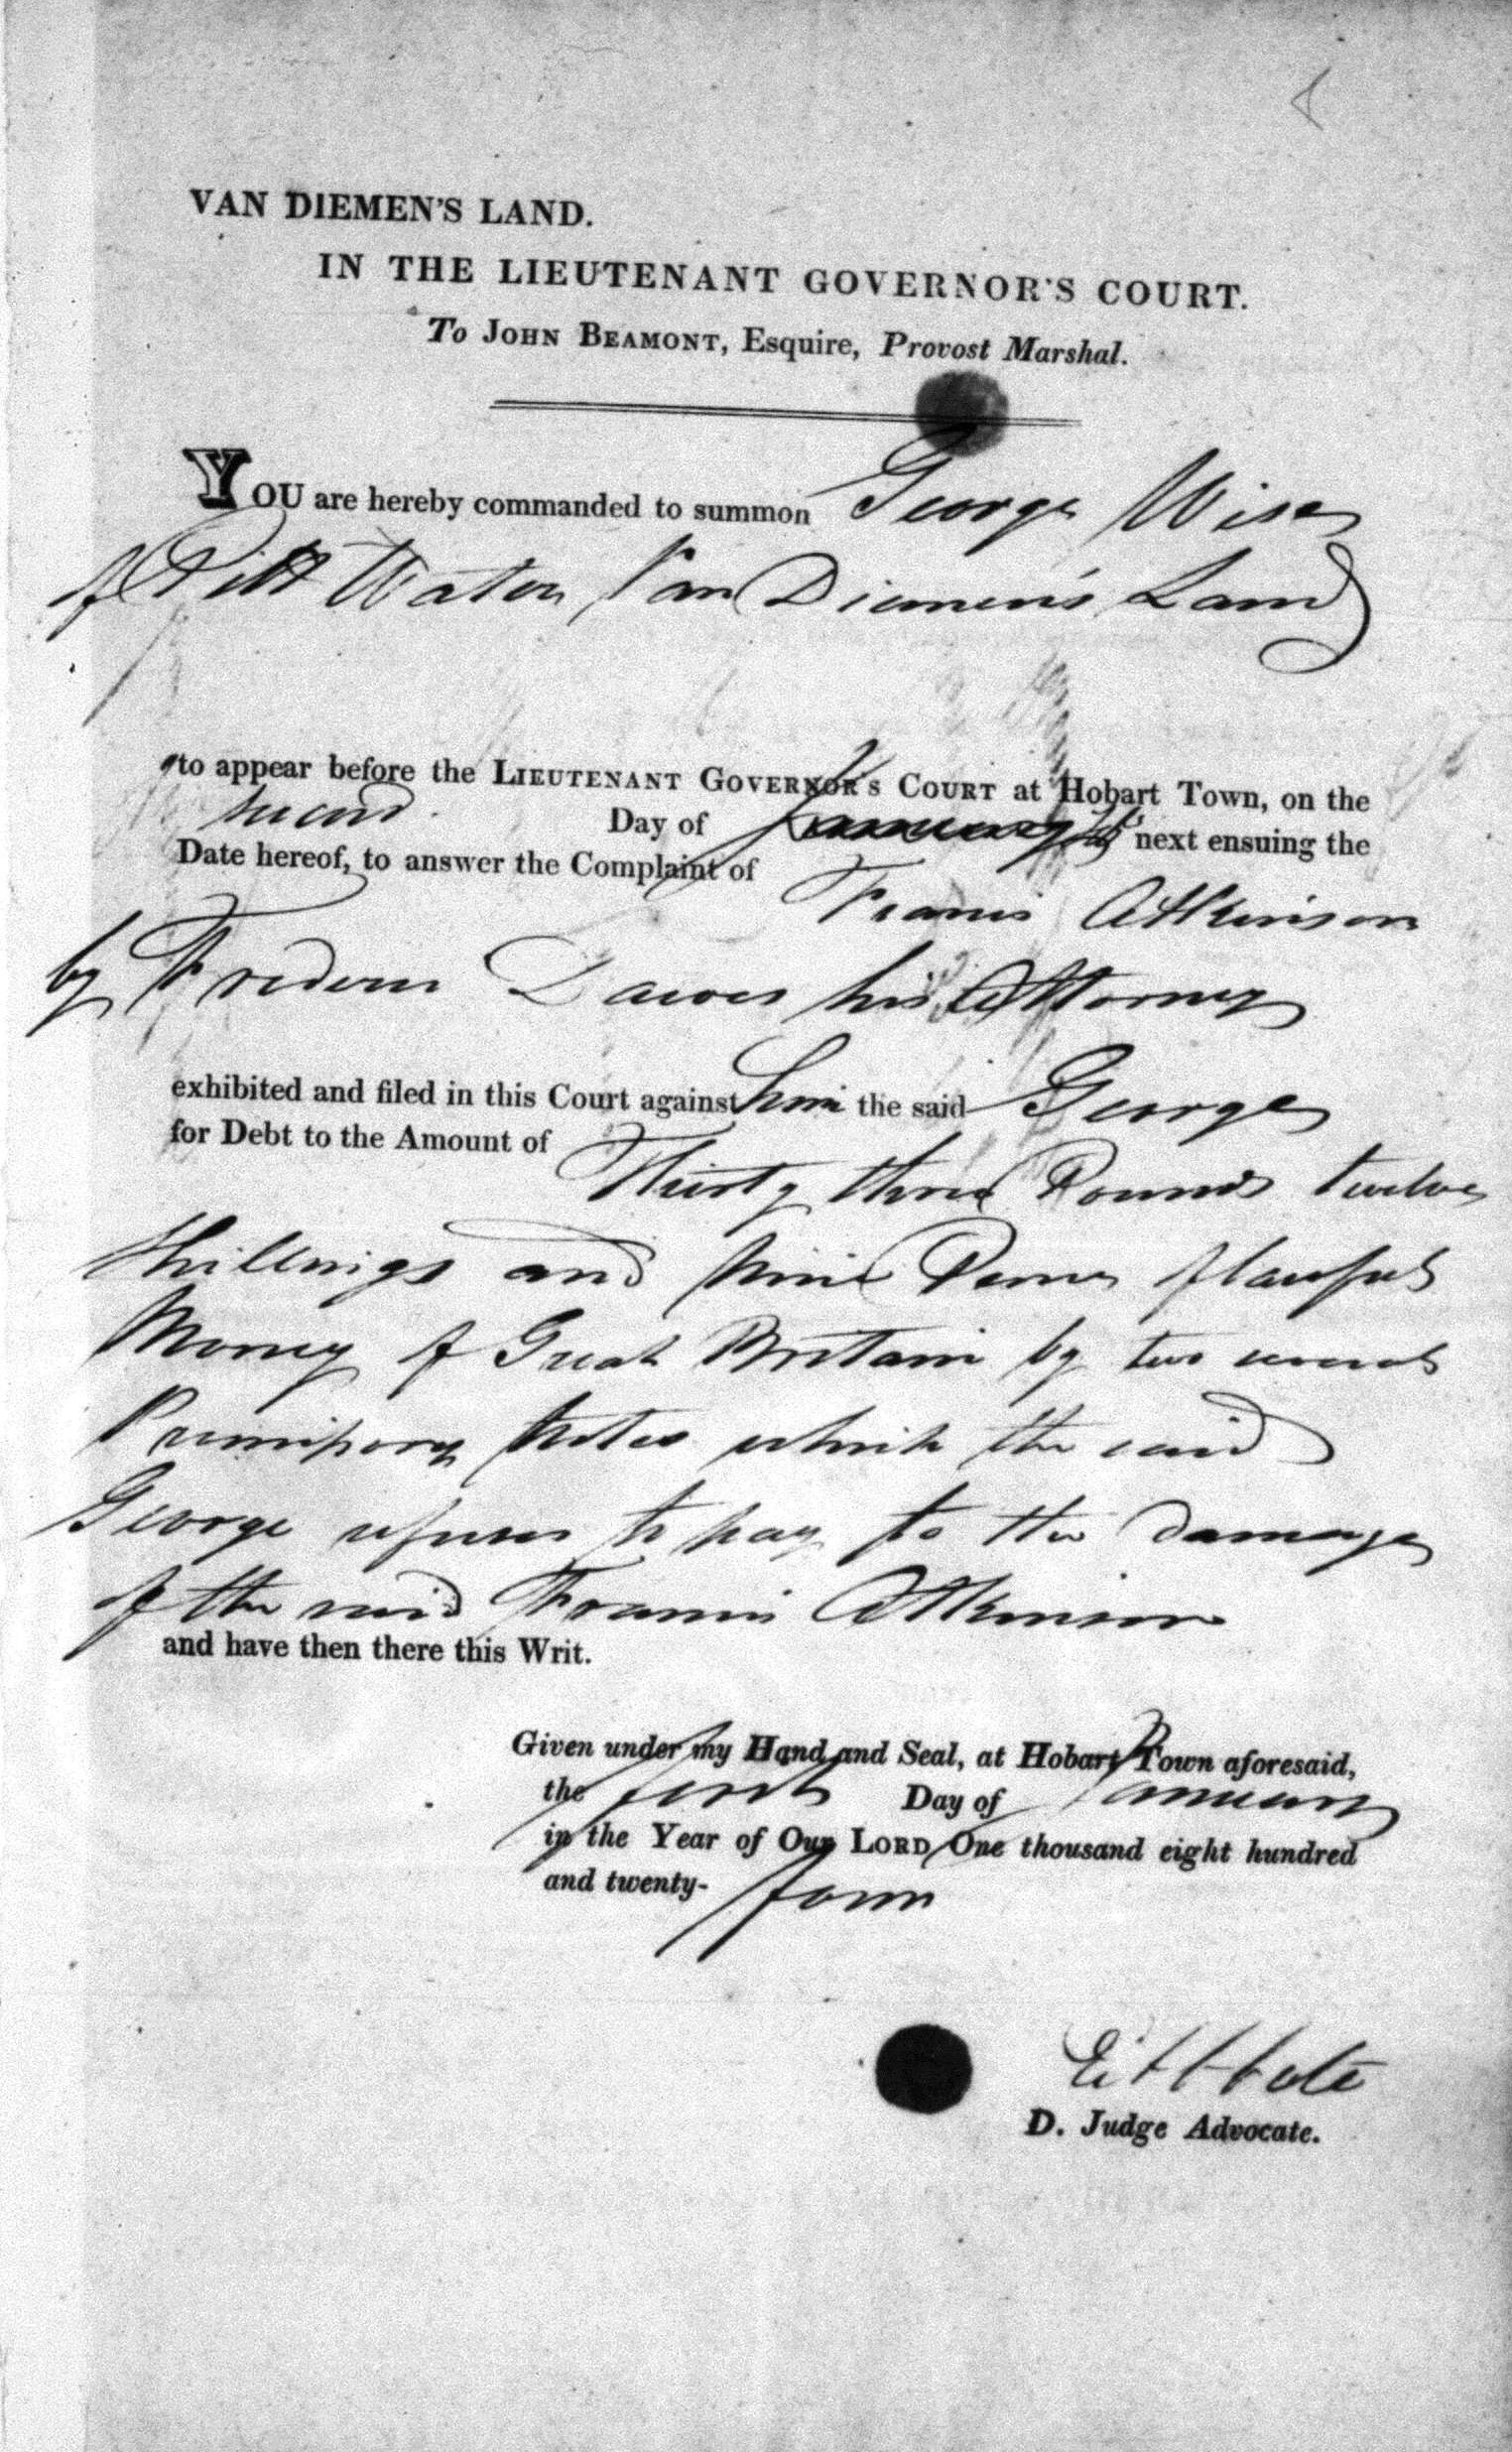 VAN DIEMEN'S LAND.
IN THE LIEUTENANT GOVERNOR'S COURT.
To JOHN BEAMONT, Esquire, Provost Marshal.
YOU are hereby commanded to summon George Wise
of Pitt Water Van Diemen's Land
to appear before the LIEUTENANT GOVERNOR'S COURT at Hobart Town, on the
second Day of next ensuing the
Date hereof, to answer the Complaint of
Francis Atkinson
by Dawes his Attorney
exhibited and filed in this Court against him the said George
for Debt to the Amount of
Thirty three Pounds twelve
Shillings and nine Pence of lawful
Money of Great Britain by two several
Promissory Notes which the said
George refuses to pay to the damage
of the said Francis Atkinson
and have then there this Writ.
Given under my Hand and Seal, at Hobart Town aforesaid,
the first Day of January
in the Year of Our LORD One thousand eight hundred
and twenty- four
D. Judge Advocate.